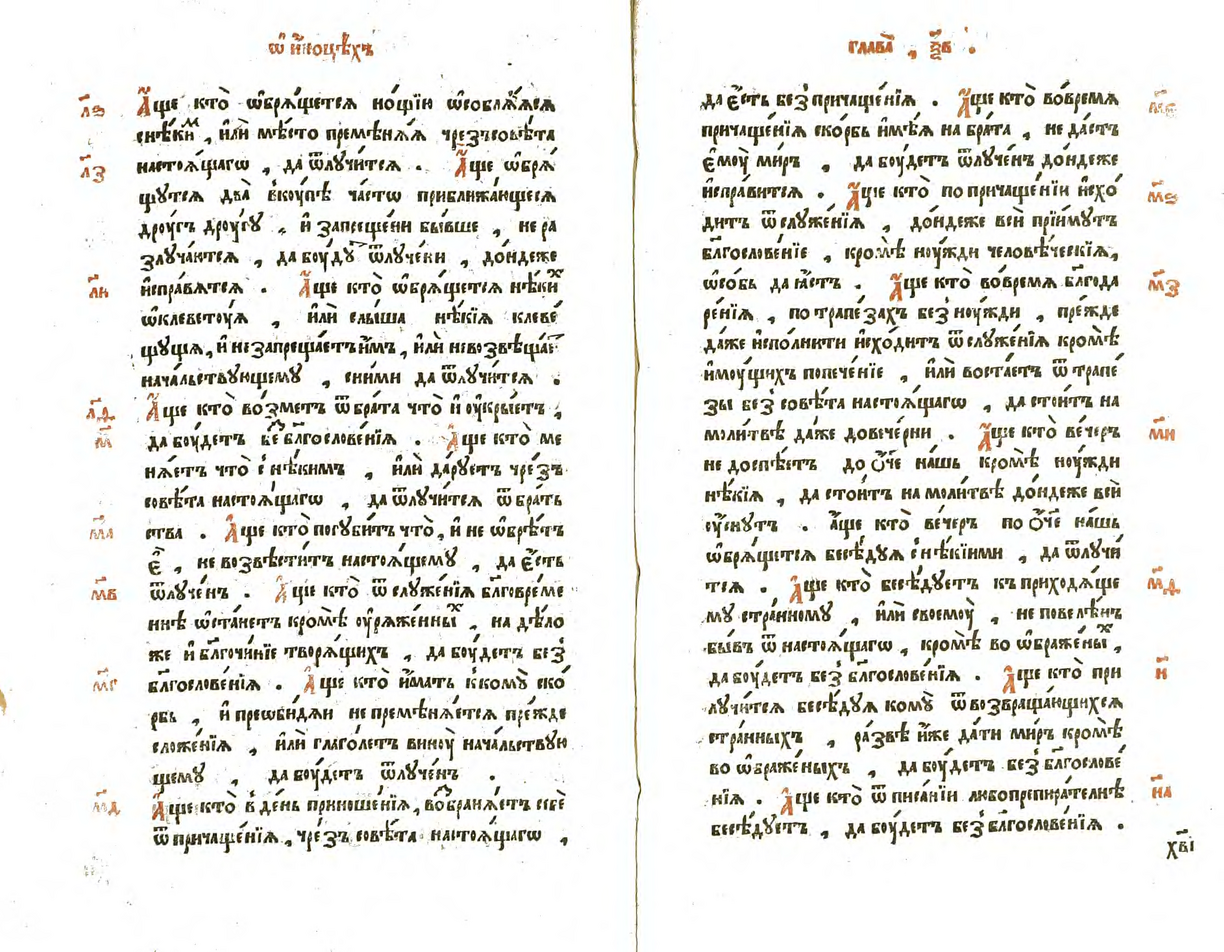 ѡ҆ и҆нѡцѣхъ
л҃ѕ А҆́ще кто̀ ѡ҆брѧ́щетсѧ но́щїи ѡ҆соблѧ́ѧсѧ
снѣ́кимъ , и҆лѝ мѣ́сто премѣнѧ́ѧ чрезъ совѣ́та
л҃з настоѧ́щагѡ , да ѿлꙋчи́тсѧ . А҆́ще ѡ҆брѧ́
щꙋтсѧ два̀ вкꙋ́пѣ ча́стѡ приближа́ющесѧ
дрꙋ́гъ дрꙋ́гꙋ , и҆ запреще́ни бы́вше , не ра
злꙋча́ютсѧ , да бꙋ́дꙋтъ ѿлꙋче́ни , до́ндеже
л҃и и҆спра́вѧтсѧ . А҆́ще кто̀ ѡ҆брѧ́щетсѧ нѣ́кихъ
ѡ҆клевето́ѵѧ , и҆лѝ слы́ша нѣ́кїѧ клеве́
щꙋщѧ , и҆ не запреща́етъ и҆̀мъ , и҆лѝ невозвѣща́етъ
нача́льствꙋющемꙋ , сни́ми да ѿлꙋчи́тсѧ .
л҃ѳ А҆́ще кто̀ во́зметъ ѿ бра́та что̀ и҆ ᲂу҆кры́етъ ,
м҃ да бꙋ́детъ без̾ бл҃гослове́нїѧ . А҆́ще кто̀ ме
нѧ́етъ что̀ с нѣ́кимъ , и҆лѝ да́рꙋетъ чре́зъ
совѣ́та настоѧ́щагѡ , да ѿлꙋчи́тсѧ ѿ бра́тъ
м҃а ства . А҆́ще кто̀ погꙋби́тъ что̀ , и҆ не ѡ҆брѣ́тъ
є҆̀ , не возвѣсти́тъ настоѧ́щемꙋ , да є҆́сть
м҃в ѿлꙋче́нъ . А҆́ще кто̀ ѿ слꙋже́нїѧ бл҃говре́ме
ннѣ ѡ҆ста́нетъ кромѣ̀ ᲂу҆рѧже́нныхъ , на дѣ́ло
же и҆ бл҃гочи́нїе творѧ́щихъ , да бꙋ́детъ без̾
м҃г бл҃гослове́нїѧ . А҆́ще кто̀ и҆́мать к комꙋ̀ ско́
рбь , и҆ преѡби́дѧи не премѣнѧ́етсѧ пре́жде
сложе́нїѧ , и҆лѝ глаго́летъ винꙋ̀ нача́льствꙋю
щемꙋ , да бꙋ́детъ ѿлꙋче́нъ .
м҃д А҆́ще кто̀ в де́нь приноше́нїѧ , возбранѧ́етъ себѐ
ѿ причаще́нїѧ , чре́зъ совѣ́та настоѧ́щагѡ ,
глава̀ , ѯ҃в .
да є҆́сть без̾ причаще́нїѧ . А҆́ще кто̀ во́времѧ м҃є
причаще́нїѧ ско́рбь и҆мѣ́ѧ на бра́та , не да́стъ
є҆мꙋ̀ ми́ръ , да бꙋ́детъ ѿлꙋче́нъ до́ндеже
и҆спра́витсѧ . А҆́ще кто̀ по причаще́нїи и҆схо́ м҃ѕ
дитъ ѿ слꙋже́нїѧ , до́ндеже всѝ прїи́мꙋтъ
бл҃гослове́нїе , кромѣ̀ нꙋ́жди человѣ́ческїѧ ,
ѡ҆со́бь да ꙗ҆́стъ . А҆́ще кто̀ во́времѧ бл҃года м҃з
ре́нїѧ , по трапе́захъ без̾ нꙋ́жди , пре́жде
да́же и҆спо́лнити и҆схо́дитъ ѿ слꙋже́нїѧ кромѣ̀
и҆мꙋ́щихъ попече́нїе , и҆лѝ воста́етъ ѿ трапе́
зы без̾ совѣ́та настоѧ́щагѡ , да стои́тъ на
моли́твѣ да́же до вече́рни . А҆́ще кто̀ ве́черъ м҃и
не доспѣ́етъ до Ѻ҆́ч҃е на́шъ кромѣ̀ нꙋ́жди
нѣ́кїѧ , да стои́тъ на моли́твѣ до́ндеже всѝ
ᲂу҆́снꙋтъ . а҆́ще кто̀ ве́черъ по Ѻ҆́ч҃е на́шъ
ѡ҆брѧ́щетсѧ бесѣ́дꙋѧ с нѣ́кїими , да ѿлꙋчи́
тсѧ . А҆́ще кто̀ бесѣ́дꙋетъ къ приходѧ́ще м҃ѳ
мꙋ стра́нномꙋ , и҆лѝ своемꙋ̀ , не повелѣ́нъ
бы́въ ѿ настоѧ́щагѡ , кромѣ̀ во ѡ҆браже́ныхъ ,
да бꙋ́детъ без̾ бл҃гослове́нїѧ . А҆́ще кто̀ при н҃
лꙋчи́тсѧ бесѣ́дꙋѧ комꙋ̀ ѿ возвраща́ющихсѧ
стра́нныхъ , ра́звѣ и҆́же да́ти ми́ръ кромѣ̀
во ѡ҆браже́ныхъ , да бꙋ́детъ без̾ бл҃гослове́
нїѧ . А҆́ще кто̀ ѿ писа́нїи любопрепира́телнѣ н҃а
бесѣ́дꙋетъ , да бꙋ́детъ без̾ бл҃гослове́нїѧ .
х҃ві